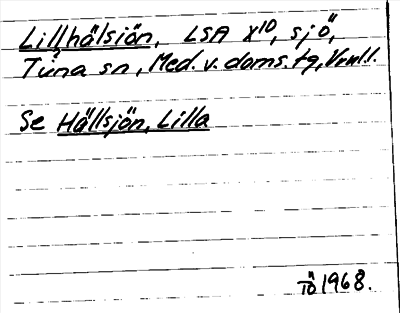 Lillhälsjön, LSA X10, sjö,
Tuna sn, Med. v. doms. tg, Vnl l.
Se Hällsjön, Lilla
TÖ 1968.